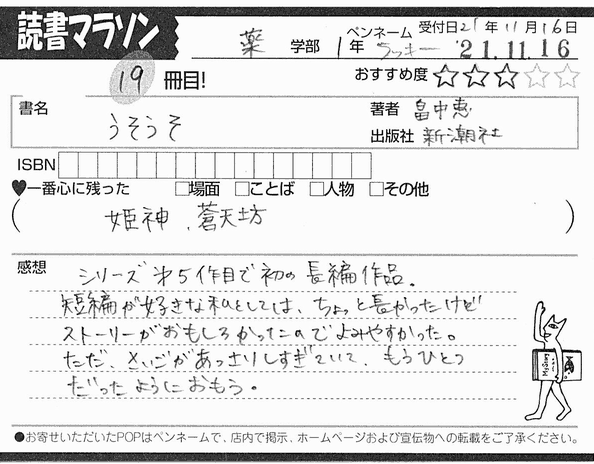 読書マラソン
薬 学部 1年 ペンネーム ラッキー 受付日21年11月16日
'21.11.16
19 冊目! おすすめ度 ☆☆☆☆☆
書名 うそうそ 著者 畠中恵
出版社 新潮社
ISBN
♥一番心に残った □場面 □ことば □人物 □その他
( 姫神、蒼天坊 )
感想 シリーズ第5作目で初の長編作品。
短編が好きな私としては、ちょっと長かったけど
ストーリーがおもしろかったのでよみやすかった。
ただ、さいごがあっさりしすぎていて、もうひとつ
だったようにおもう。
●お寄せいただいたPOPはペンネームで、店内で掲示、ホームページおよび宣伝物への転載をご了承ください。